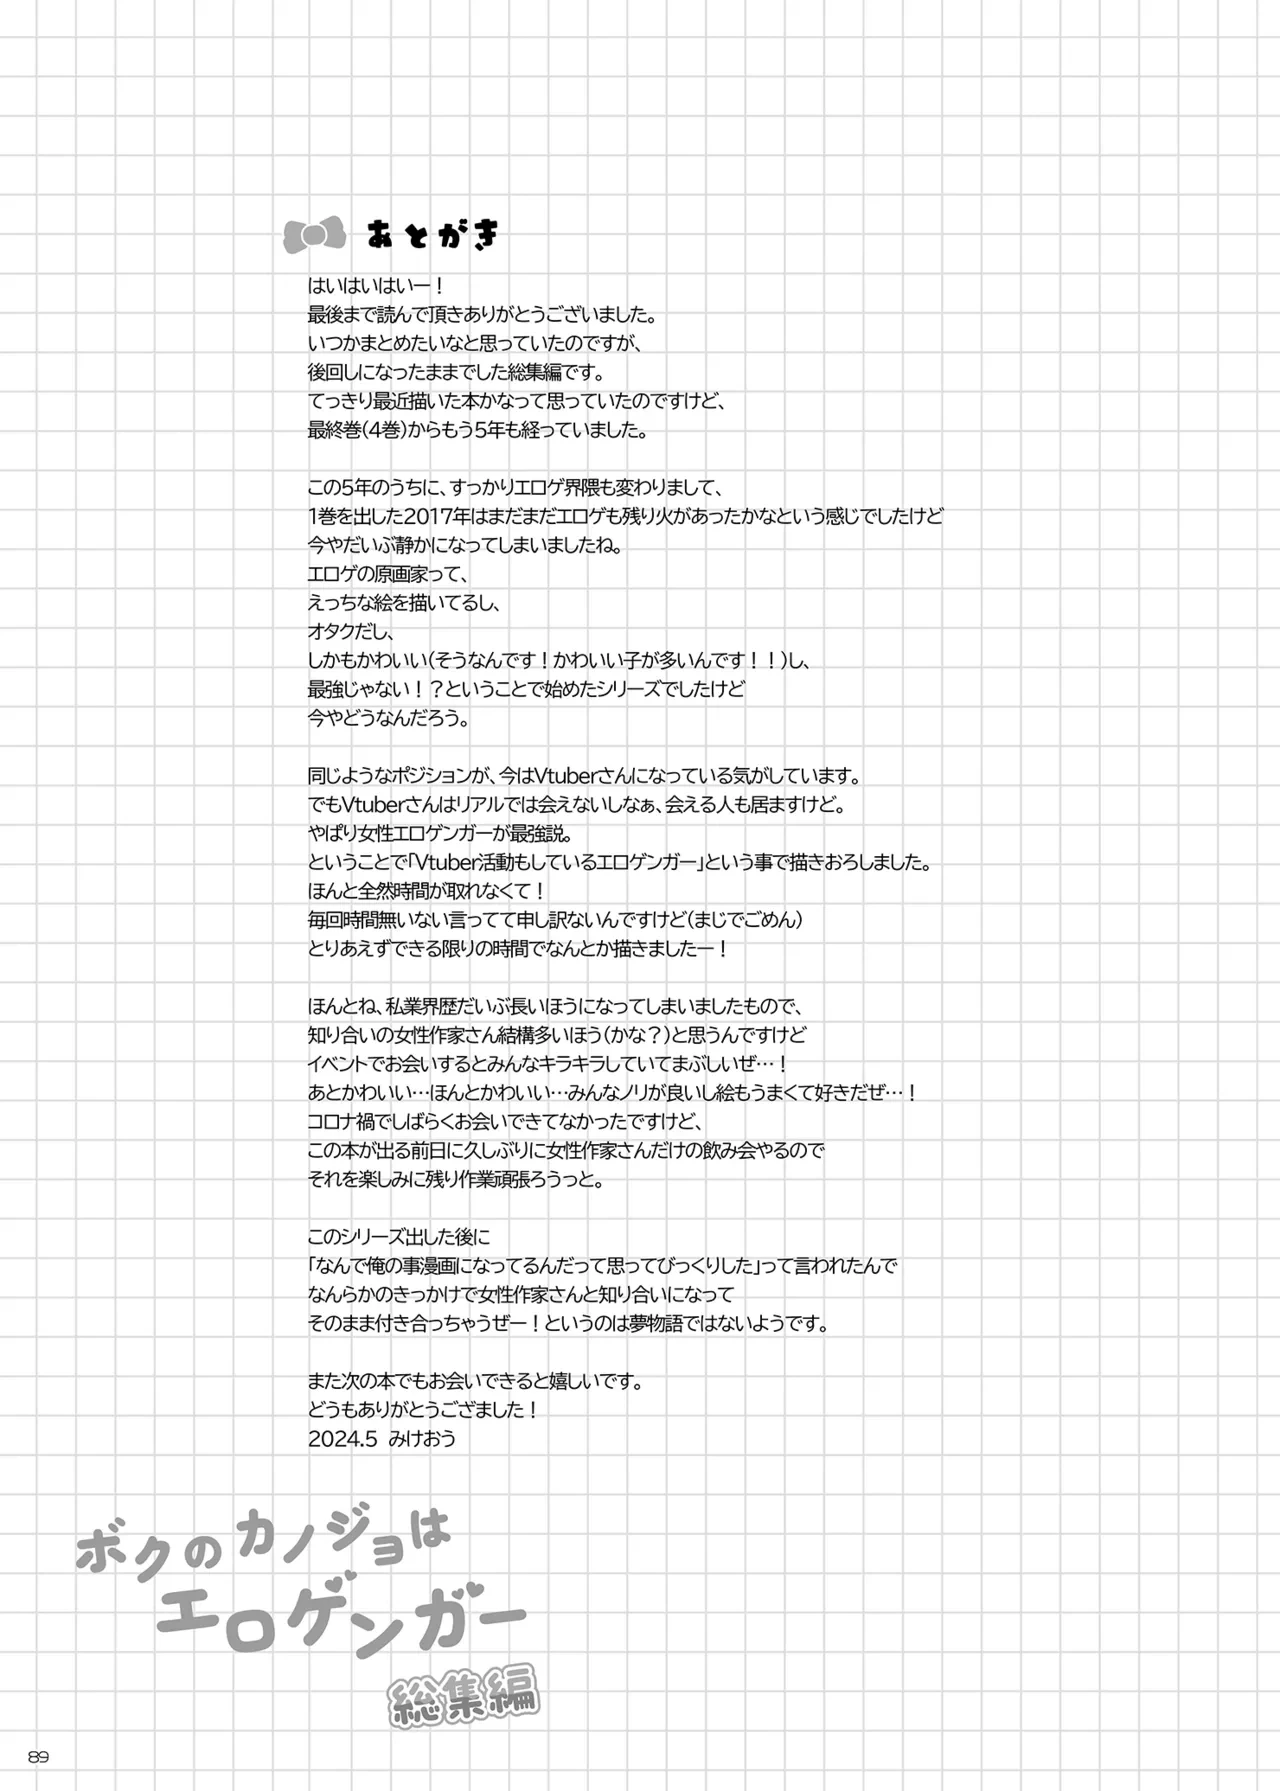 あとがき
はいはいはいー！
最後まで読んで頂きありがとうございました。
いつかまとめたいなと思っていたのですが、
後回しになったままでした総集編です。
てっきり最近描いた本かなって思っていたのですけど、
最終巻（4巻）からもう5年も経っていました。
この5年のうちに、すっかりエロゲ界隈も変わりまして、
1巻を出した2017年はまだまだエロゲも残り火があったかなという感じでしたけど
今やだいぶ静かになってしまいましたね。
エロゲの原画家って、
えっちな絵を描いてるし、
オタクだし、
しかもかわいい（そうなんです！かわいい子が多いんです！！）し、
最強じゃない！？ということで始めたシリーズでしたけど
今やどうなんだろう。
同じようなポジションが、今はVtuberさんになっている気がしています。
でもVtuberさんはリアルでは会えないしなぁ、会える人も居ますけど。
やぱり女性エロゲンガーが最強説。
ということで「Vtuber活動もしているエロゲンガー」という事で描きおろしました。
ほんと全然時間が取れなくて！
毎回時間無いない言ってて申し訳ないんですけど（まじでごめん）
とりあえずできる限りの時間でなんとか描きましたー！
ほんとね、私業界歴だいぶ長いほうになってしまいましたもので、
知り合いの女性作家さん結構多いほう（かな？）と思うんですけど
イベントでお会いするとみんなキラキラしていてまぶしいぜ…！
あとかわいい…ほんとかわいい…みんなノリが良いし絵もうまくて好きだぜ…！
コロナ禍でしばらくお会いできてなかったですけど、
この本が出る前日に久しぶりに女性作家さんだけの飲み会やるので
それを楽しみに残り作業頑張ろうっと。
このシリーズ出した後に
「なんで俺の事漫画になってるんだって思ってびっくりした」って言われたんで
なんらかのきっかけで女性作家さんと知り合いになって
そのまま付き合っちゃうぜー！というのは夢物語ではないようです。
また次の本でもお会いできると嬉しいです。
どうもありがとうござました！
2024.5 みけおう
ボクのカノジョは
エロゲンガー
総集編
89